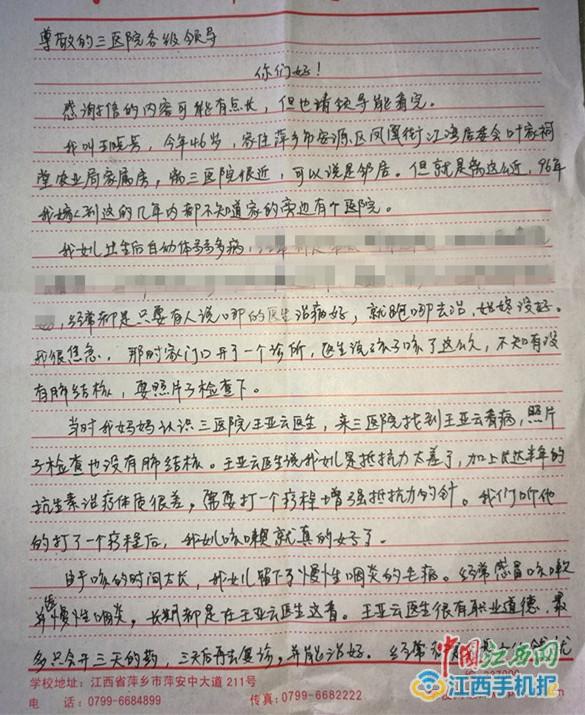 尊敬的三医院各级领导
你们好！
感谢信的内容可能有点长，但也请领导能看完。
我叫王晓，今年46岁，家住萍乡市安源区凤凰街江湾居委会叶家祠
堂农业局家属房，离三医院很近，可以说是邻居。但就是离这么近，96年
我嫁到这的几年内都不知道家的旁边有个医院。
我女儿出生后自动体多多病，
经常都是只要有人说哪的医生治病好，就跑哪去治，始终没好。
我很焦急，那时家门口开了一个诊所，医生说孩子咳了这么久，不知有没
有肺结核，要照片子检查下。
当时我妈妈认识三医院王亚云医生，来三医院找到王亚云看病，照片
子检查也没有肺结核。王亚云医生说我女儿是抵抗力太差了，加上长达半年的
抗生素治疗体质很差，需要打一个疗程增强抵抗力的针。我们听他
的打了一个疗程后，我女儿咳嗽就真的好了。
由于咳的时间太长，我女儿留下了慢性咽炎的毛病。经常感冒咳嗽
并慢性咽炎，长期都是在王亚云医生这看。王亚云医生很有职业道德，最
多只会开三天的药，三天后再去复诊，并能治好。经常
中国江西网
江西手机报
学校地址：江西省萍乡市萍安中大道 211号
电 话：0799-6684899 传真：0799-6682222